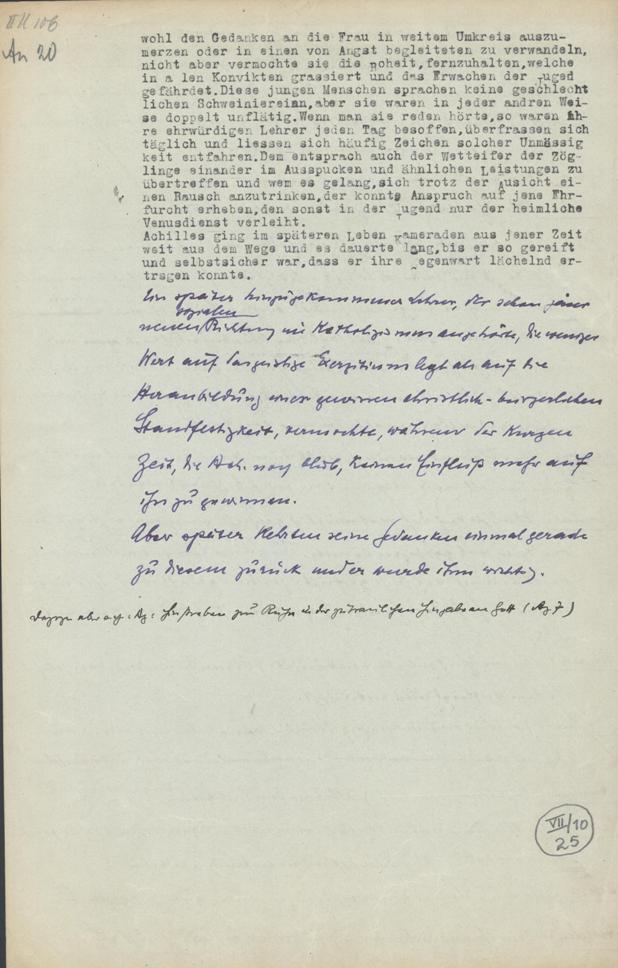 II II 106
An 20
wohl den Gedanken an die Frau in weitem Umkreis auszu-
merzen oder in einen von Angst begleiteten zu verwandeln,
nicht aber vermochte sie die Roheit,fernzuhalten,welche
in a len Konvikten grassiert und das Erwachen der Juged
gefährdet.Diese jungen Menschen sprachen keine geschlecht
lichen Schweiniereian,aber sie waren in jeder andren Wei-
se doppelt unflätig.Wenn man sie reden hörte,so waren ih-
re ehrwürdigen Lehrer jeden Tag besoffen,überfrassen sich
täglich und liessen sich häufig Zeichen solcher Unmässig
keit entfahren.Dem entsprach auch der Wetteifer der Zög-
linge einander im Ausspucken und ähnlichen Leistungen zu
übertreffen und wem es gelang,sich trotz der Ausicht ei-
nen Rausch anzutrinken,der konnte Anspruch auf jene Ehr-
furcht erheben,den sonst in der Jugend nur der heimliche
Venusdienst verleiht.
Achilles ging im späteren Leben Kameraden aus jener Zeit
weit aus dem Wege und es dauerte lang,bis er so gereift
und selbstsicher war,dass er ihre Gegenwart lächelnd er-
tragen konnte.
Ein später hinzugekommener Lehrer, der schon jener
sozialen
neuen Richtung im Katholizismus angehörte, die weniger
Wert auf das geistige Exerzitium legt als auf die
Heranbildung einer gewissen christlich-bürgerlichen
Standfestigkeit, vermochte, während der kurzen
Zeit, die Ach. noch blieb, keinen Einfluß mehr auf
ihn zu gewinnen.
Aber später kehrten seine Gedanken einmal gerade
zu diesem zurück und er wurde ihm wichtig.
Dagegen aber auch: Ag: Hinstreben zur Ruhe in der zutraulichen Hingabe an Gott (Ag 7)
VII/10
25